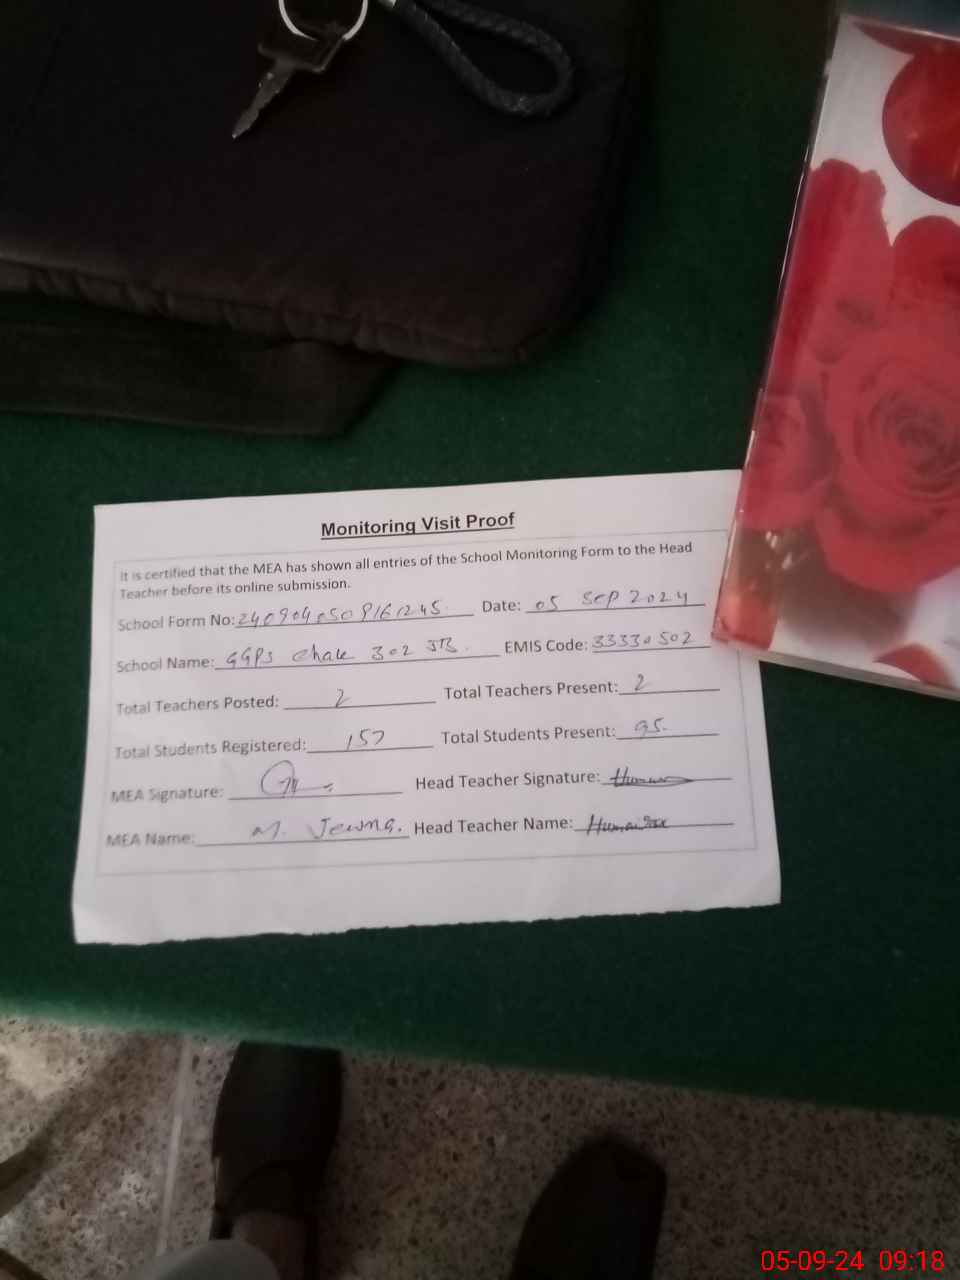 Monitoring Visit Proof
It is certified that the MEA has shown all entries of the School Monitoring Form to the Head
Teacher before its online submission.
School Form No: Date: 05 Sep 2024
School Name: GGPS Chak 302 JB. EMIS Code: 33330502
Total Teachers Posted: 2 Total Teachers Present: 2
Total Students Registered: 157 Total Students Present: 95.
MEA Signature: Head Teacher Signature:
MEA Name: M. Head Teacher Name:
05-09-24 09:18